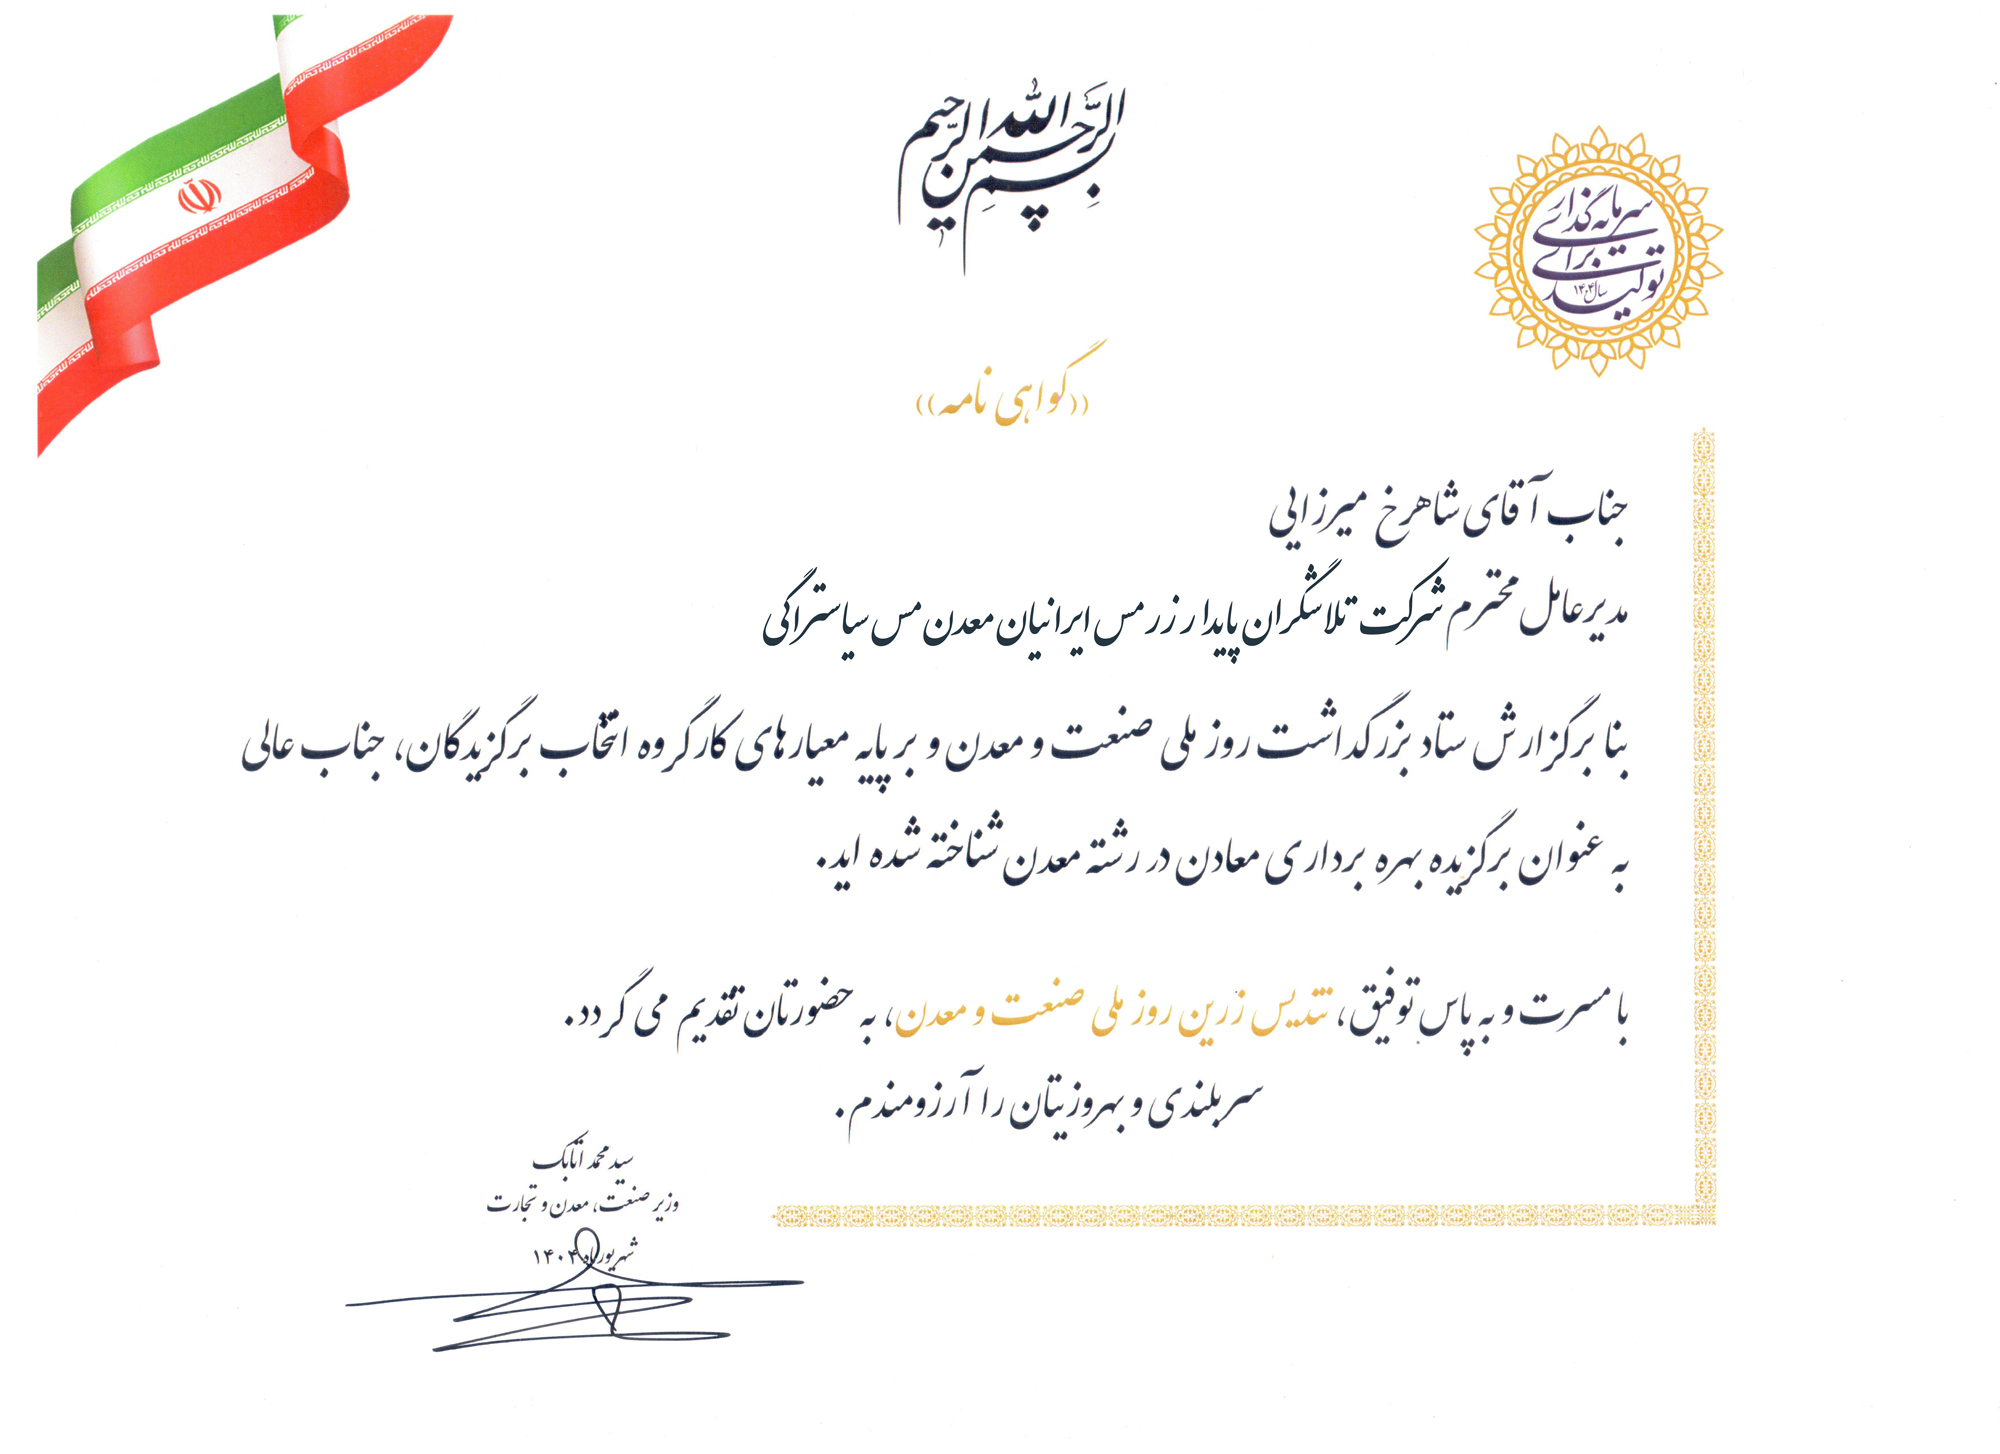 بسم الله الرحمن الرحیم
سرمایه‌گذاری
برای
تولید
سال ۱۴۰۴
((گواهی نامه))
جناب آقای شاهرخ میرزایی
مدیرعامل محترم شرکت تلاشگران پایدار زرمس ایرانیان معدن مس سیاستراگی
بنا برگزارش ستاد بزرگداشت روز ملی صنعت و معدن و بر پایه معیارهای کارگروه انتخاب برگزیدگان، جناب عالی
به عنوان برگزیده بهره برداری معادن در رشته معدن شناخته شده اید.
با مسرت و به پاس توفیق، تندیس زرین روز ملی صنعت و معدن، به حضورتان تقدیم می گردد.
سربلندی و بهروزیتان را آرزومندم.
سید محمد اتابک
وزیر صنعت، معدن و تجارت
شهریورماه ۱۴۰۴